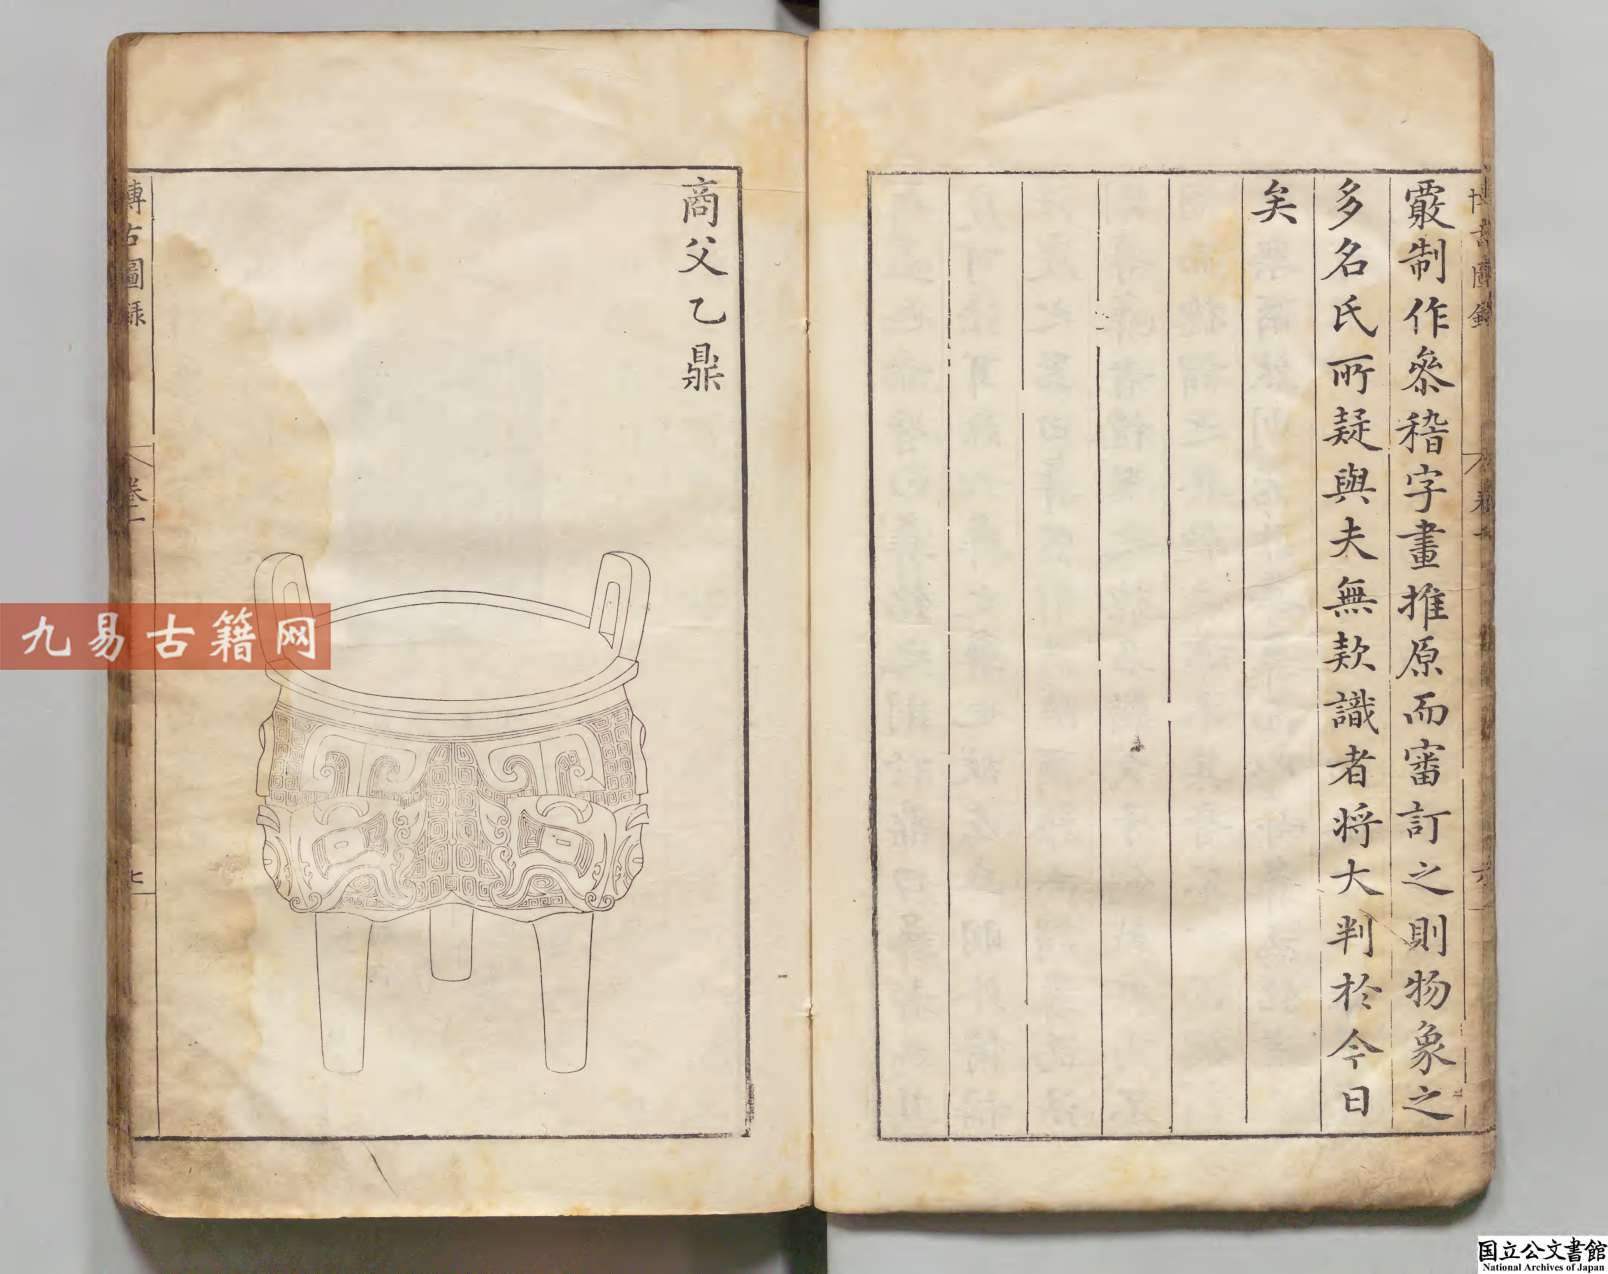 覈制作叅稽字畫推原而審訂之則物象之
多名氏所疑與夫無款識者將大判於今日
矣
商父乙鼎
博古圖錄
卷二
七
九易古籍网
国立公文書館
National Archives of Japan